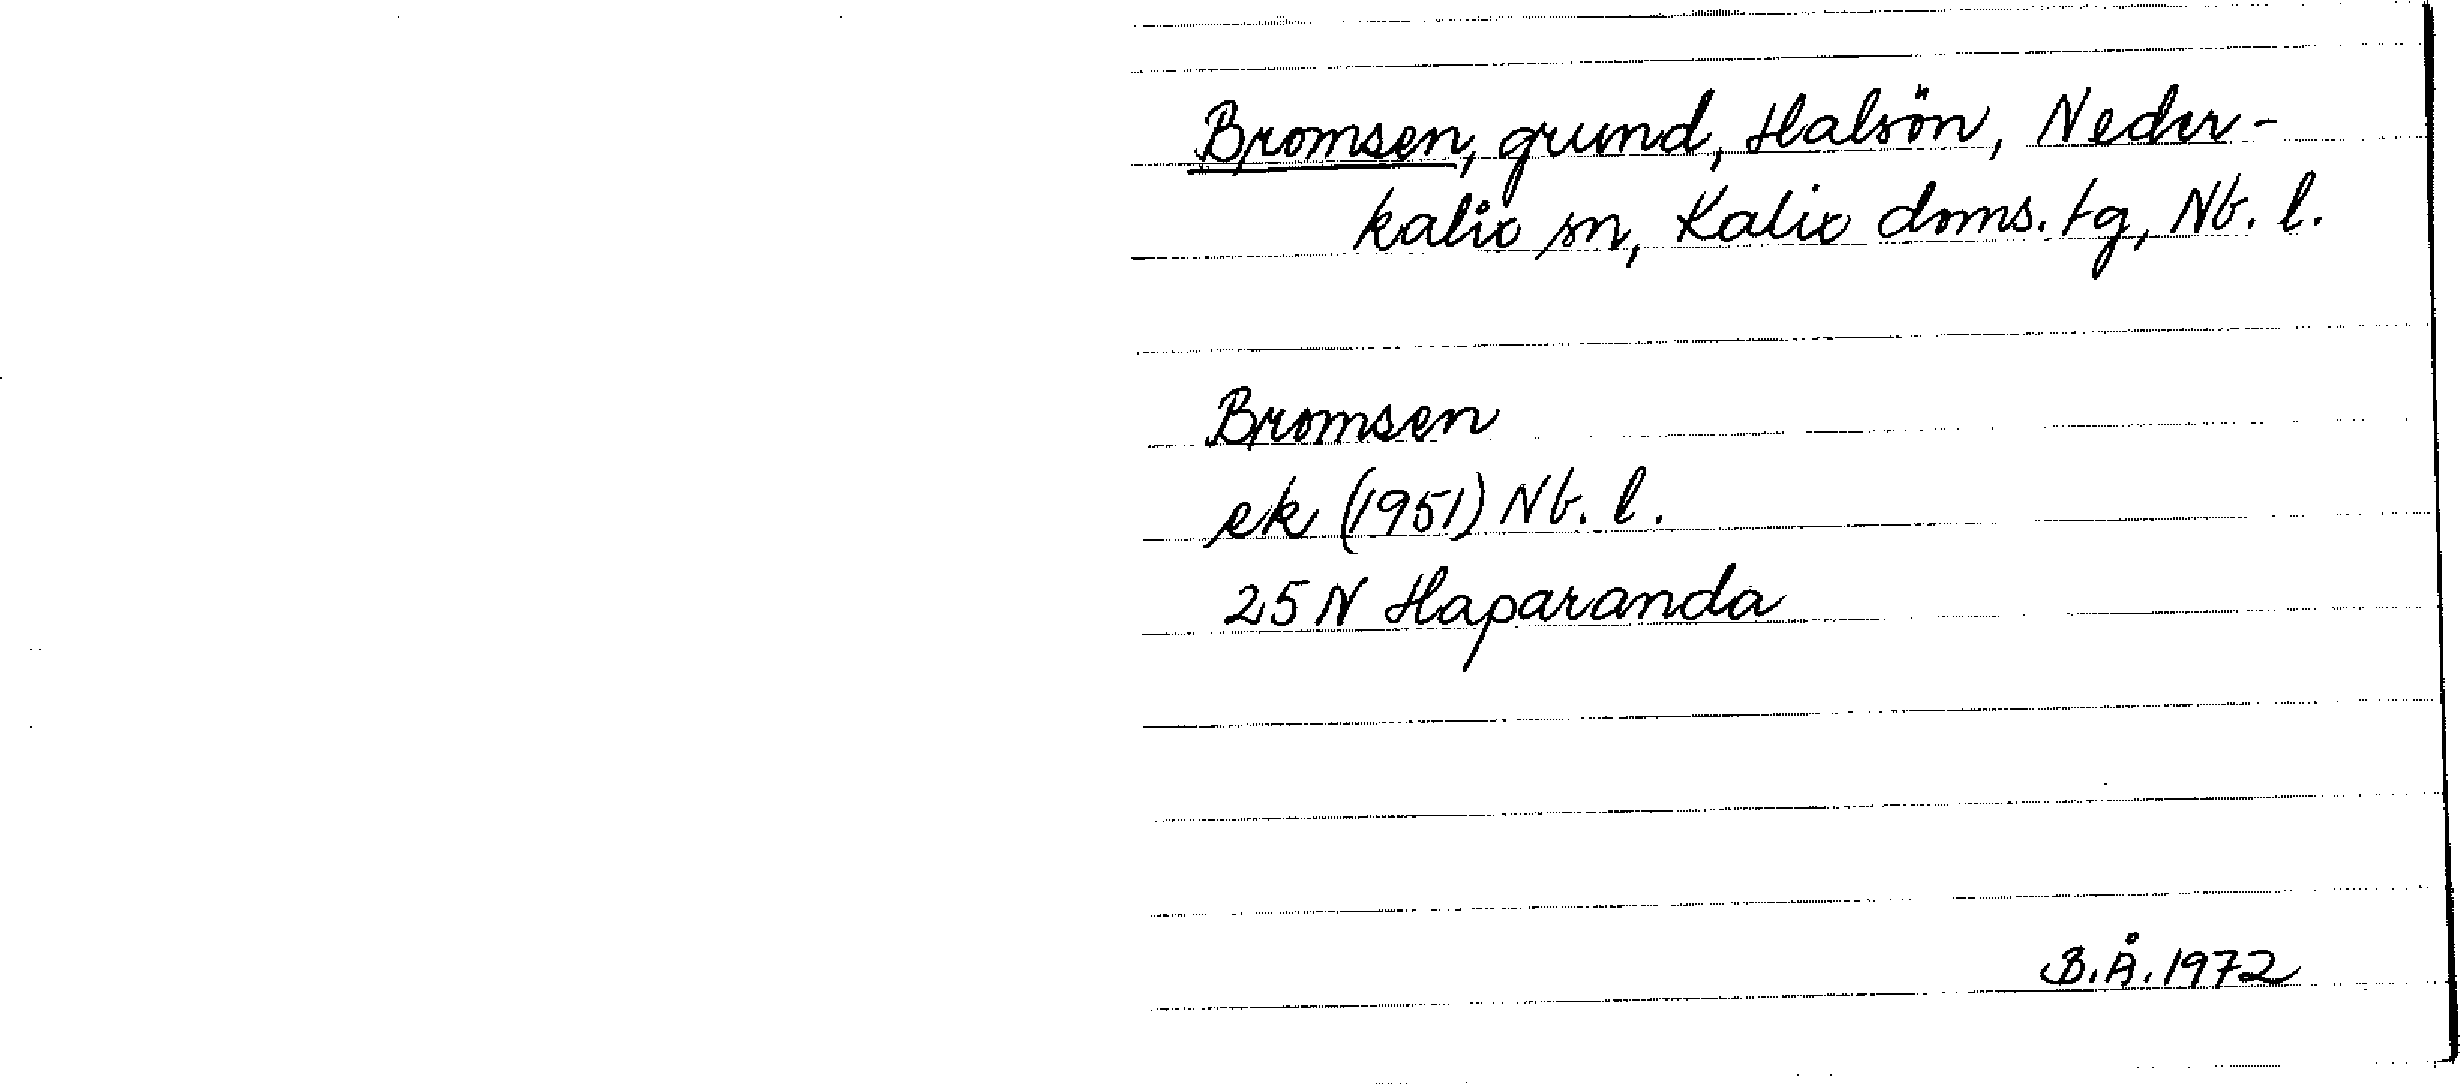 Bromsen, grund, Halsön, Neder-
kalix sn, Kalix doms. tg, Nb. l.
Bromsen
ek (1951) Nb. l.
25 N Haparanda
B.Å. 1972